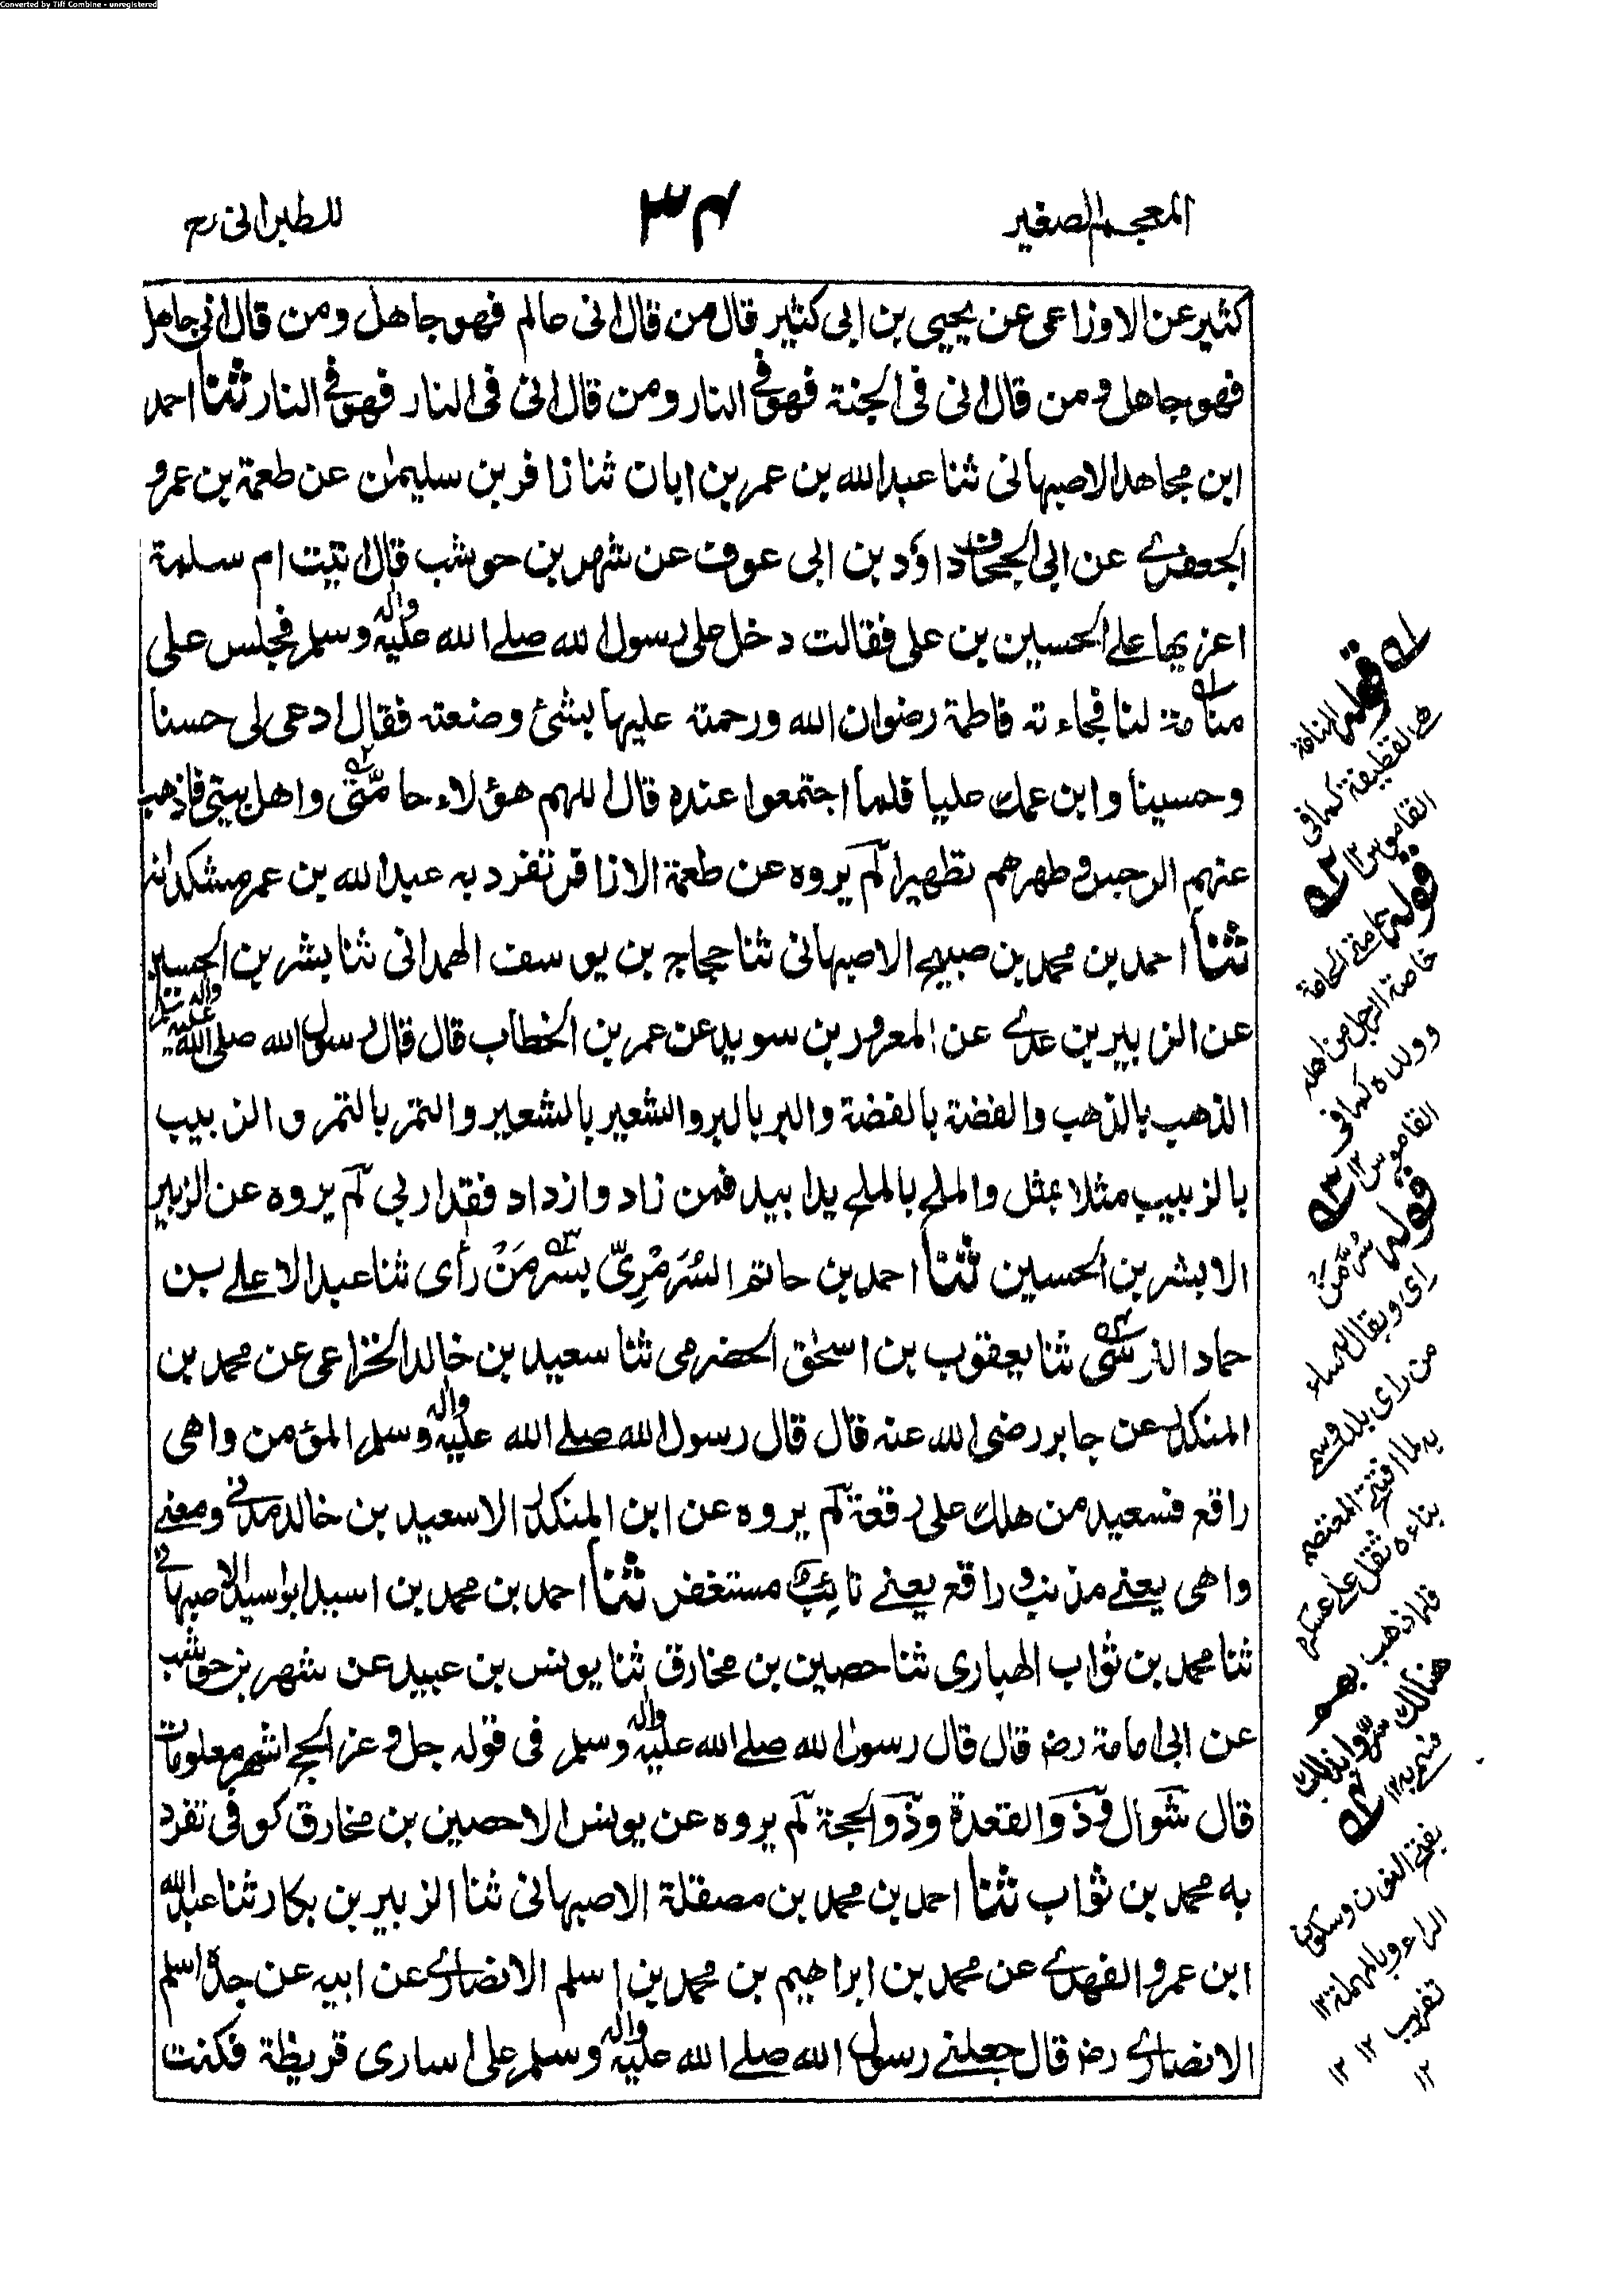 Converted by Tiff Combine - unregistered
المعجم الصغير
٣٤
للطبرانى رح
كثير عن الاوزاعى عن يحيى بن ابى كثير قال من قال انى عالم فهو جاهل ومن قال انى جاهل
فهو جاهل ومن قال انى فى الجنة فهو فى النار ومن قال انى فى النار فهو فى النار ثنا احمد
ابن مجاهد الاصبهانى ثنا عبد الله بن عمر بن ابان ثنا زافر بن سليمٰن عن طعمة بن عمرو
الجعفرى عن ابى الجحاف داؤد بن ابى عوف عن شهر بن حوشب قال اتيت ام سلمة
اعزيها على الحسين بن على فقالت دخل على رسول الله صلى الله عليه واله وسلم فجلس على
منامة لنا فجاءته فاطمة رضوان الله ورحمته عليها بشئ وضعته فقال ادعى لى حسنا
وحسينا وابن عمك عليا فلما اجتمعوا عنده قال اللهم هؤلاء حامّتى واهل بيتى فاذهب
عنهم الرجس وطهرهم تطهيرا لم يروه عن طعمة الا زافر تفرد به عبد الله بن عمر مشكدانه
ثنا احمد بن محمد بن صبيح الاصبهانى ثنا حجاج بن يوسف الهمدانى ثنا بشر بن الحسين
عن الزبير بن عدى عن المعرور بن سويد عن عمر بن الخطاب قال قال رسول الله صلى الله عليه واله وسلم
الذهب بالذهب والفضة بالفضة والبر بالبر والشعير بالشعير والتمر بالتمر والزبيب
بالزبيب مثلا بمثل والملح بالملح يدا بيد فمن زاد وازداد فقد اربى لم يروه عن الزبير
الا بشر بن الحسين ثنا احمد بن حاتم السُرَمْرِىّ بسُرَّ مَنْ رأى ثنا عبد الاعلى بن
حماد النرسى ثنا يعقوب بن اسحٰق الحضرمى ثنا سعيد بن خالد الخزاعى عن محمد بن
المنكدر عن جابر رضى الله عنه قال قال رسول الله صلى الله عليه واله وسلم المؤمن واهى
راقع فسعيد من هلك على رقعة لم يروه عن ابن المنكدر الا سعيد بن خالد مدنى ومعنى
واهى يعنى مذنب و راقع يعنى تائب مستغفر ثنا احمد بن محمد بن اسيد ابو اسيد الاصبهانى
ثنا محمد بن ثواب الهبارى ثنا حصين بن مخارق ثنا يونس بن عبيد عن شهر بن حوشب
عن ابى امامة رض قال قال رسول الله صلى الله عليه واله وسلم فى قوله جل وعز الحج اشهر معلومات
قال شوال وذو القعدة وذو الحجة لم يروه عن يونس الا حصين بن مخارق كوفى تفرد
به محمد بن ثواب ثنا احمد بن محمد بن مصقلة الاصبهانى ثنا الزبير بن بكار ثنا عبد الله
ابن عمرو الفهرى عن محمد بن ابراهيم بن محمد بن اسلم الانصارى عن ابيه عن جده اسلم
الانصارى رض قال جعلنى رسول الله صلى الله عليه واله وسلم على اسارى قريظة فكنت
١ قوله المنامة
هى القطيفة كما فى
القاموس ١٢
٢ قوله حامتى الحامة
خاصة الرجل من اهله
وولده كما فى
القاموس ١٢
٣ قوله سُرَّ مَنْ
راى ويقال له ساء
من راى بلد وسمى
به لما افتتح المعتصم
بناءه ثقل على عسكره
فلما ذهب بهم
هنالك سروا بذلك
فسمى به ١٢
٤
بفتح النون وسكون
الراء وبالمهملة ١٢
تقريب ١٢
١٢
١٢